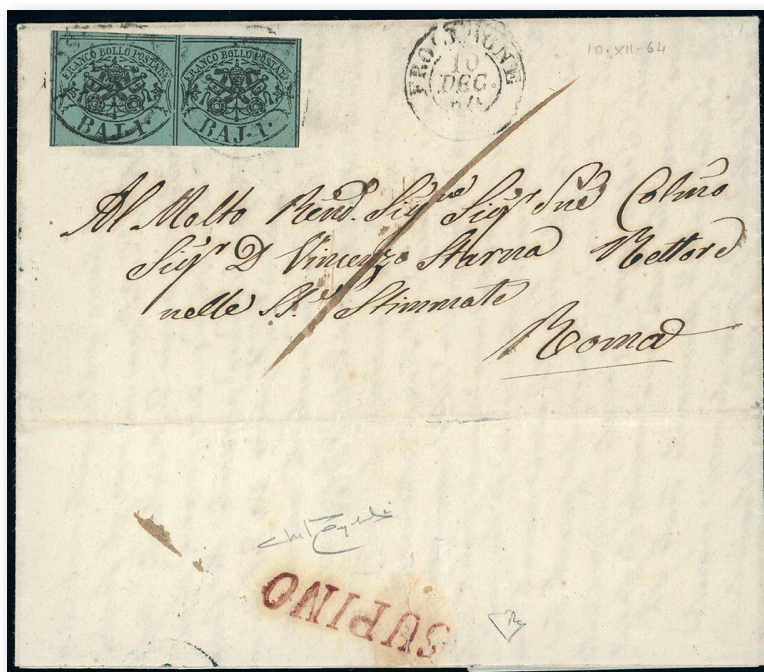 FRANCO BOLLO POSTALE
BAJ·1·
FRANCO BOLLO POSTALE
BAJ·1·
FROSINONE
10
DEC.
64
10·XII·64
Al Molto Rend. Sig.re Sig.r Colmo
Sig.r D Vincenzo Starna Rettore
nelle SS.e Stimmate
Roma
SUPINO